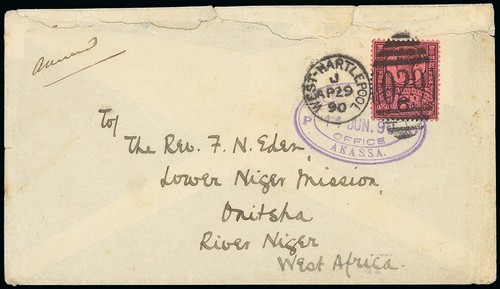 WEST-HARTLEPOOL
J
AP29
90
JUN. 9
P
OFFICE
AKASSA.
To/
The Rev. F. N. Eden,
Lower Niger Mission,
Onitsha
River Niger
West Africa.